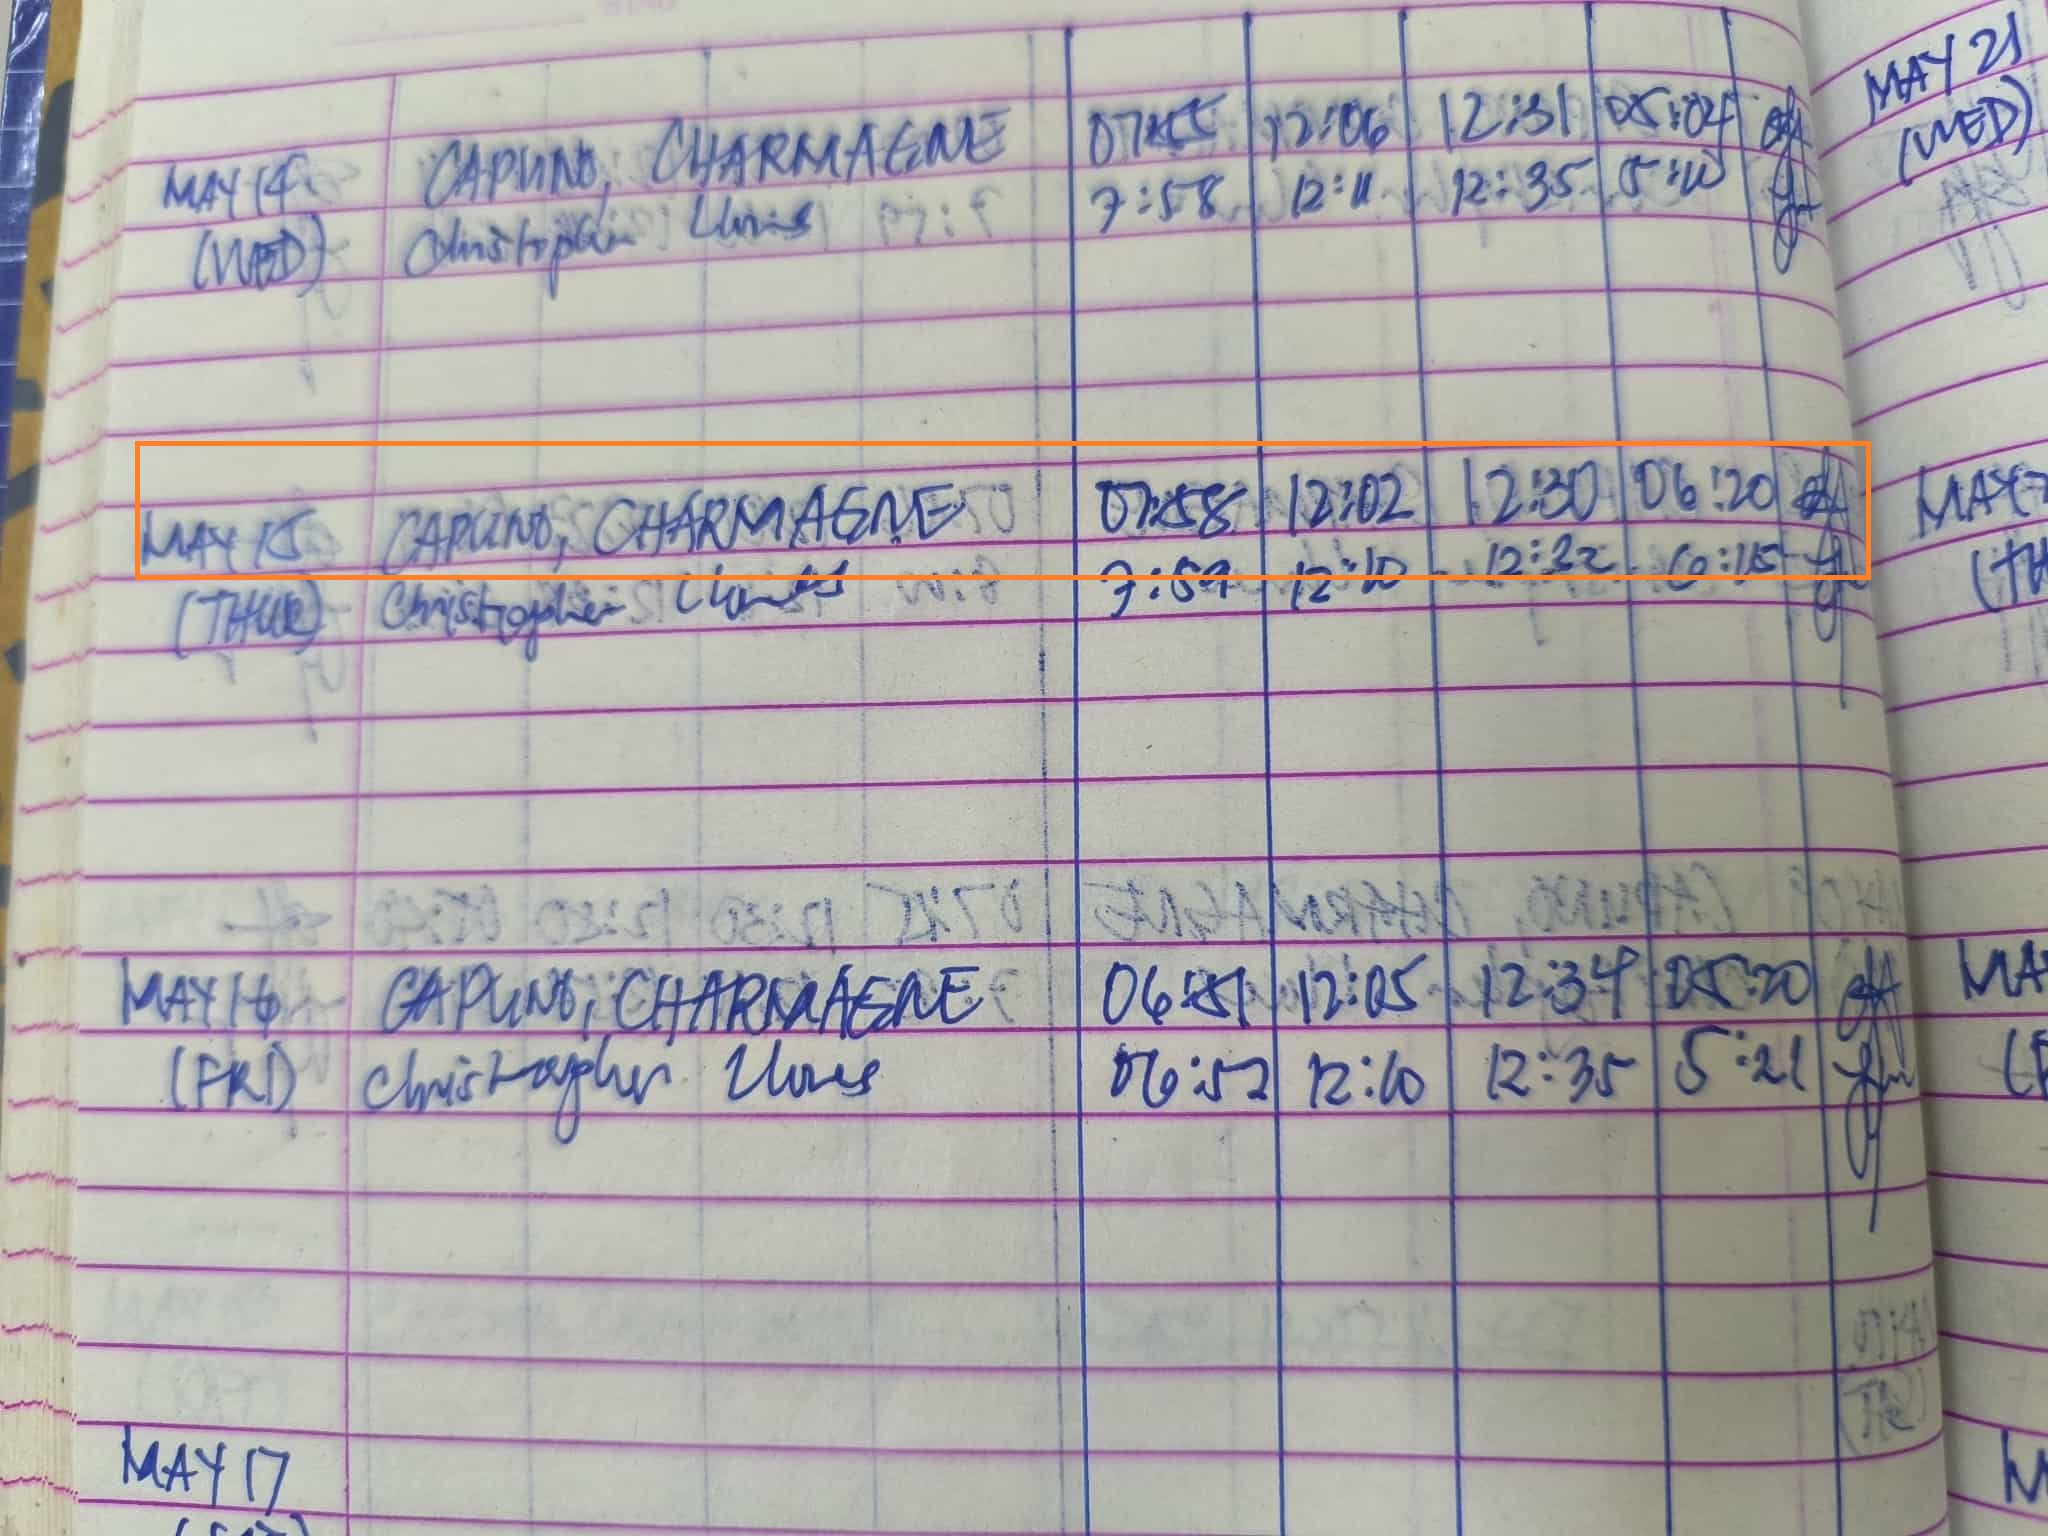 MAY 14 CAPUNO, CHARMAGNE 07:45 12:06 12:31 05:04
(WED) Christopher 7:58 12:11 12:35 5:10
MAY 15 CAPUNO, CHARMAGNE 07:58 12:02 12:30 06:20
(THUR) Christopher 7:59 12:10 12:32 6:15
MAY 16 CAPUNO, CHARMAGNE 06:51 12:05 12:34 05:20
(FRI) Christopher 06:52 12:10 12:35 5:21
MAY 17
MAY 21
(WED)